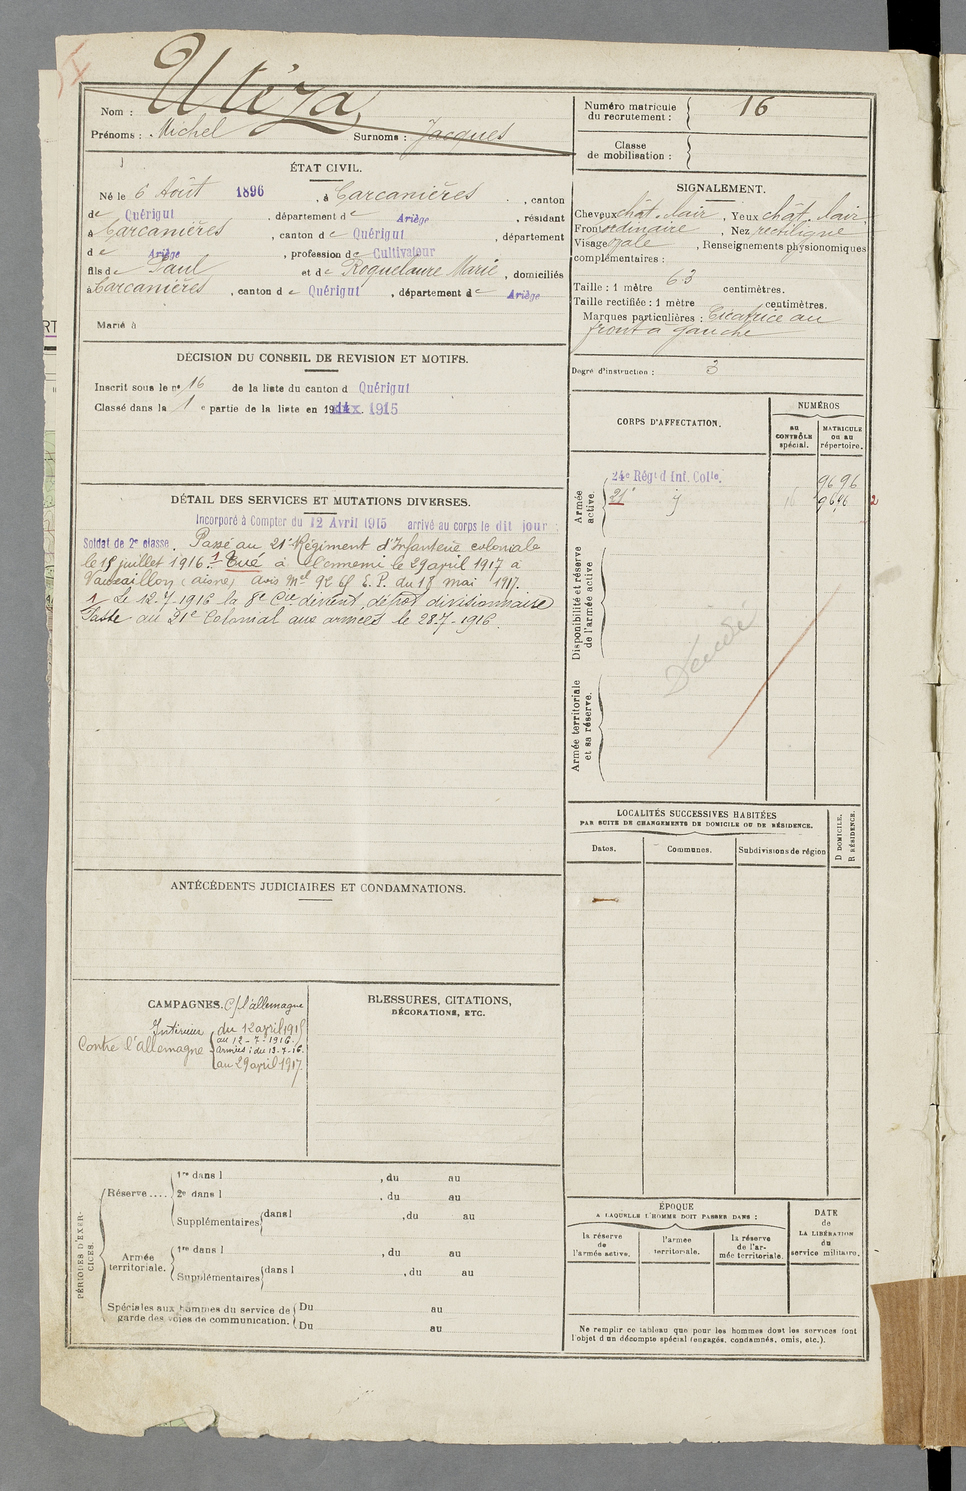 Utéza
Nom :
Prénoms : Michel Surnoms : Jacques
Numéro matricule
du recrutement : 16
Classe
de mobilisation :
ÉTAT CIVIL.
Né le 6 Août 1896, à Carcanières, canton
de Quérigut, département de Ariège, résidant
à Carcanières, canton de Quérigut, département
de Ariège, profession de Cultivateur
fils de Paul et de Roquelaure Marie, domiciliés
à Carcanières, canton de Quérigut, département de Ariège
Marié à
SIGNALEMENT.
Cheveux chât. clair, Yeux chât. clair
Front ordinaire, Nez rectiligne
Visage ovale, Renseignements physionomiques
complémentaires :
Taille : 1 mètre 63 centimètres.
Taille rectifiée : 1 mètre centimètres.
Marques particulières : Cicatrice au
front à gauche
Degré d'instruction : 3
DÉCISION DU CONSEIL DE REVISION ET MOTIFS.
Inscrit sous le nº 16 de la liste du canton d Quérigut
Classé dans la 1 e partie de la liste en 19 1915
DÉTAIL DES SERVICES ET MUTATIONS DIVERSES.
Incorporé à Compter du 12 Avril 1915 arrivé au corps le dit jour
Soldat de 2e classe. Passé au 21e Régiment d'Infanterie coloniale
le 15 juillet 1916. 1 Tué à l'ennemi le 29 avril 1917 à
Vauxaillon (aisne) avis mel 92 E. P. du 18 mai 1917.
1 Le 12-7-1916 la 8e Cie devient dépôt divisionnaire
Passe au 21e Colonial aux armées le 28-7-1916.
CORPS D'AFFECTATION.
NUMÉROS
AU
CONTRÔLE
spécial.
MATRICULE
OU AU
répertoire.
Armée
active.
24e Régt d'Inf. Colle. 9696
21e 16 9696 2
Disponibilité et réserve
de l'armée active
Armée territoriale
et sa réserve.
LOCALITÉS SUCCESSIVES HABITÉES
PAR SUITE DE CHANGEMENTS DE DOMICILE OU DE RÉSIDENCE.
Dates. Communes. Subdivisions de région
D DOMICILE.
R RÉSIDENCE.
ANTÉCÉDENTS JUDICIAIRES ET CONDAMNATIONS.
CAMPAGNES. C/ l'allemagne
Intérieur du 12 avril 1915
au 12-7-1916.
Contre l'Allemagne armées : du 13-7-16.
au 29 avril 1917.
BLESSURES, CITATIONS,
DÉCORATIONS, ETC.
PÉRIODES D'EXER-
CICES.
Réserve....
1re dans l , du au
2e dans l , du au
Supplémentaires dans l , du au
Armée
territoriale.
1re dans l , du au
Supplémentaires dans l , du au
Spéciales aux hommes du service de
garde des voies de communication.
Du au
Du au
ÉPOQUE
A LAQUELLE L'HOMME DOIT PASSER DANS :
la réserve
de
l'armée active.
l'armée
territoriale.
la réserve
de l'ar-
mée territoriale.
DATE
de
LA LIBÉRATION
du
service militaire.
Ne remplir ce tableau que pour les hommes dont les services font
l'objet d'un décompte spécial (engagés, condamnés, omis, etc.).